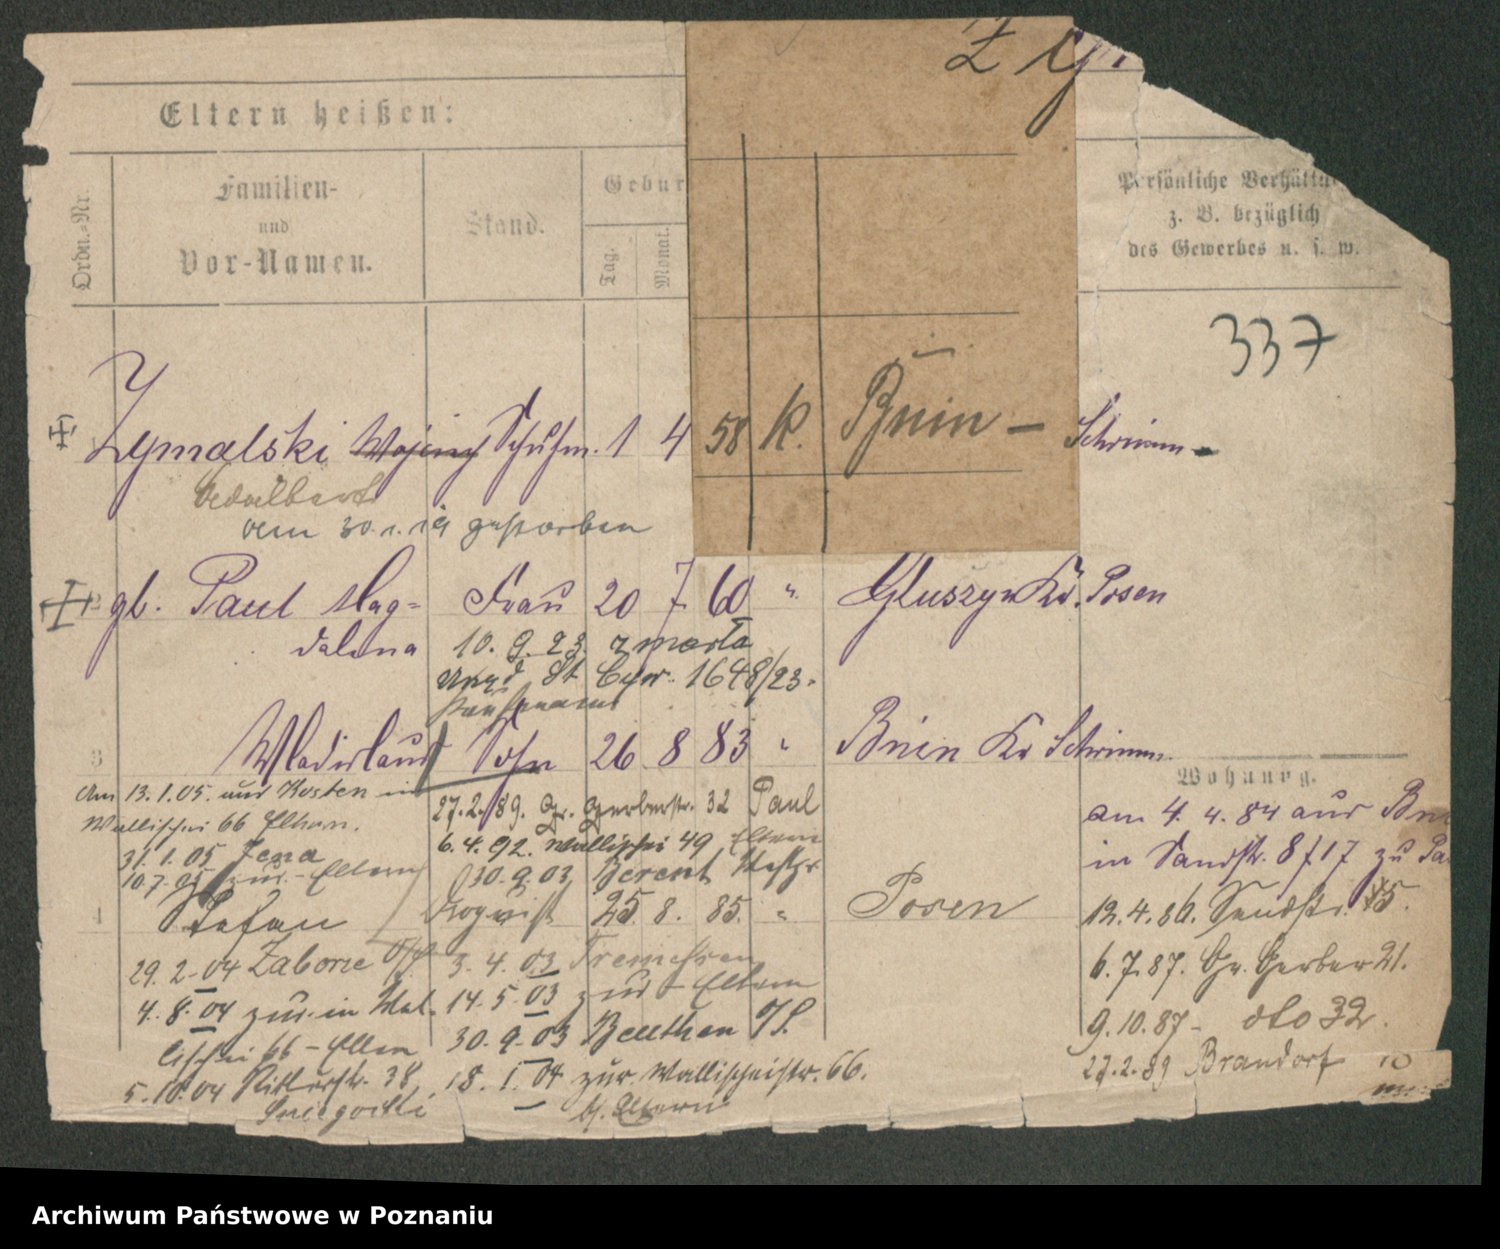 Z
Eltern heißen:
Ordn.=Nr.
Familien-
und
Vor-Namen.
Stand.
Gebur
Tag.
Monat.
Persönliche Verhältn
z. B. bezüglich
des Gewerbes u. s. w.
337
Zymalski Schuhm. 1 4 58 k. Bnin – Schrimm
Adalbert
am 30.1.19 gestorben
2 gb. Paul Mag= Frau 20 7 60 " Gluszyn Kr. Posen
dalena 10. 9. 23. zmarła
Urzęd St Cyw. 1648/23.
Kaufmann
3 Wladislaus Sohn 26 8 83 " Bnin Kr Schrimm
Wohnung.
Am 13.1.05. aus Kosten in
Wallischei 66 Eltern.
31.1.05 Jena
10.7.05 zur. – Eltern
27.2.89. Gr. Gerberstr. 32 Paul
6.4.92. Wallischei 49 Eltern
30.9.03 Berent Westpr
am 4. 4. 84 aus Bn
in Sandstr. 8 f 17 zu Pa
4 Stefan 25. 8. 85. " Posen
12.4.86. Sandstr.
29.2.04 Zaborze O/S
3. 4. 03 Tremessen
6.7.87. Gr. Gerber 21.
4.8.04 zur. in Wal-
14.5.03 zur – Eltern
9.10.87 – dto 32.
lischei 66 – Eltern
30.9.03 Beuthen O/S.
27.2.89 Brandorf
5.10.04 Ritterstr. 38,
18.1.04 zur. Wallischeistr. 66.
Sniegocki
b/. Eltern
Archiwum Państwowe w Poznaniu